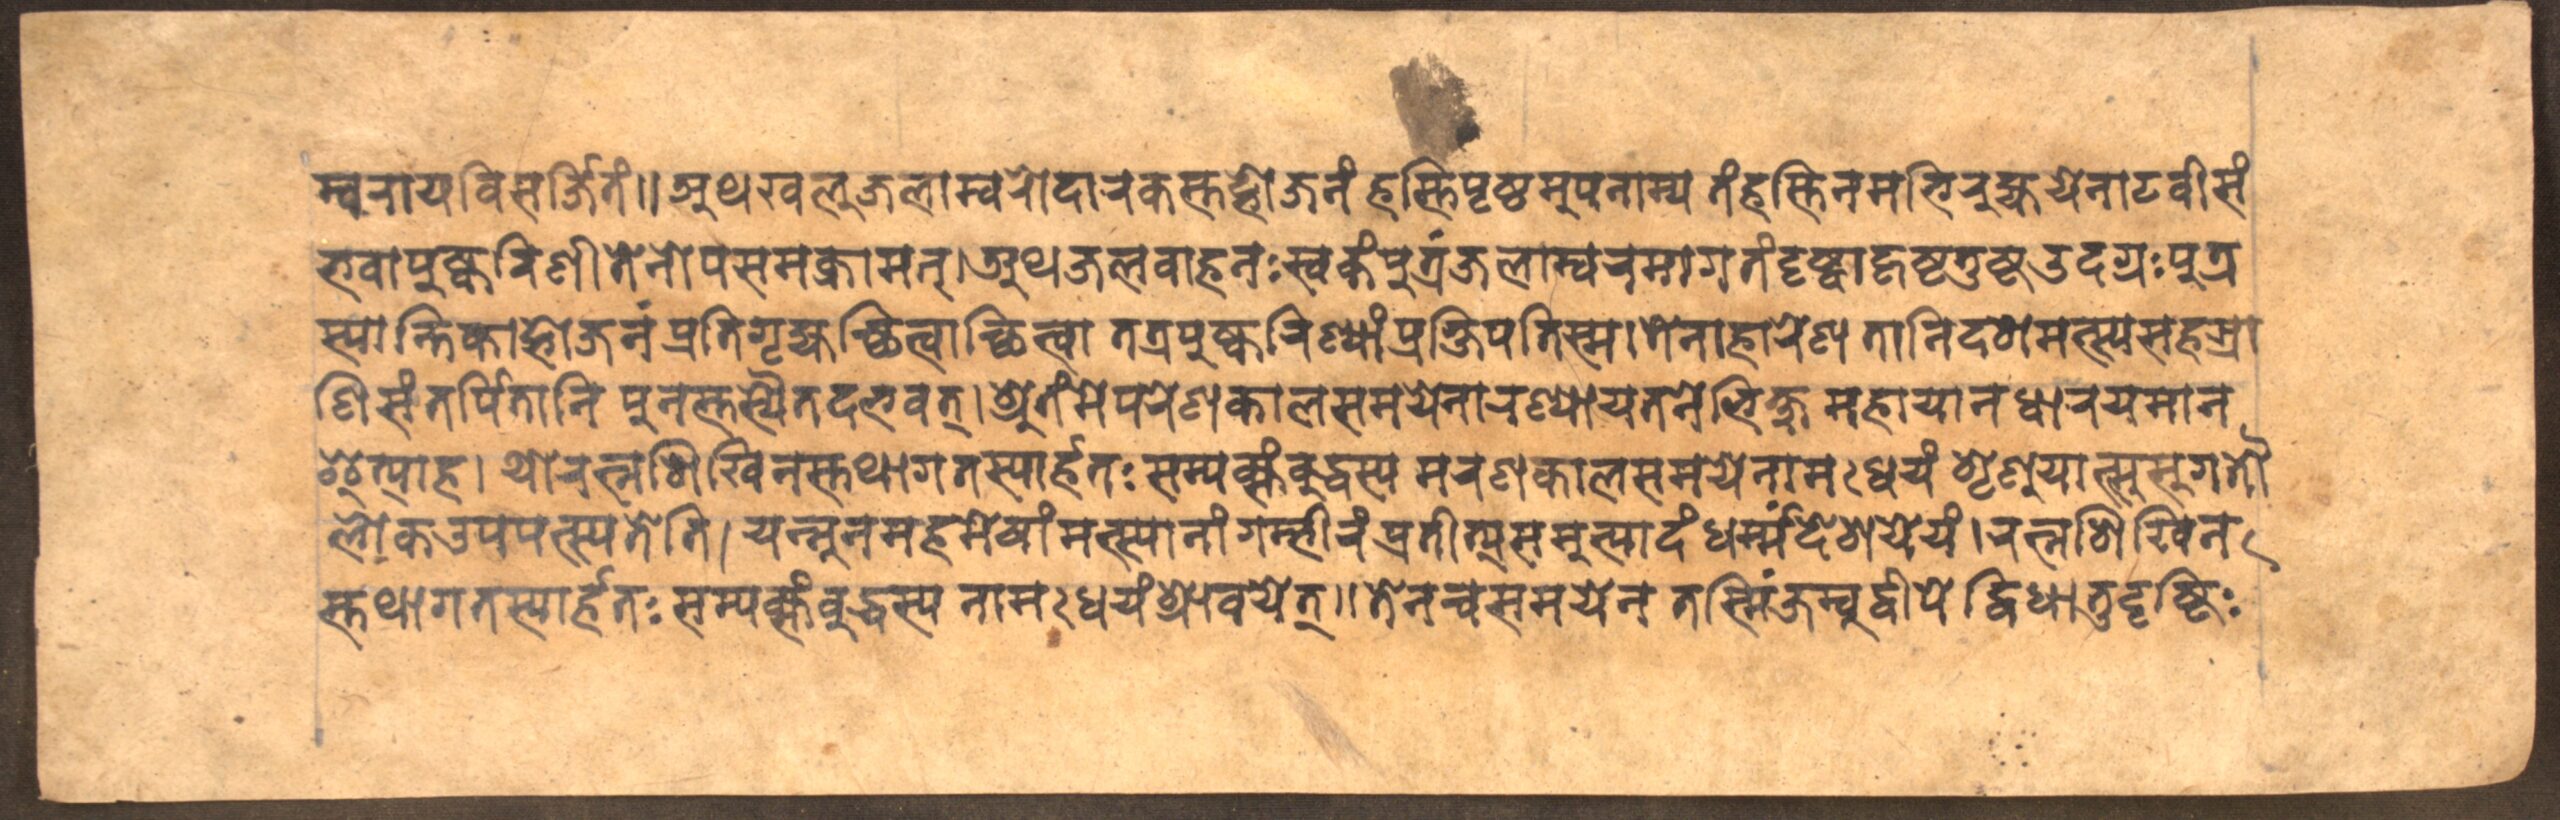 म्वरायविसर्जितं॥अथखलुजलाम्वरोदारकस्तद्भोजनं हस्तिपृष्ठमुपनाम्य तंहस्तिनमभिरुह्ययेनाटवीसं
भवापुष्करिणीतेनोपसमक्रामत्।अथजलवाहनःस्वकंपुत्रंजलाम्वरमागतंदृष्ट्वाहृष्टतुष्टउदग्रःपुत्र
स्यान्तिकाद्भोजनंप्रतिगृह्यच्छित्वाच्छित्वा तत्रपुष्करिण्यांप्रक्षिपतिस्म।तेनाहारेण तानिदशमत्स्यसहस्रा
णिसंतर्पितानि पुनस्तस्यैतदभवत्।श्रुतंमेपरेणकालसमयेनारण्यायतनेभिक्षु महायानधारयमान
श्चेत्याह। योरत्नशिखिनस्तथागतस्यार्हतः सम्यक्संबुद्धस्य मरणकालसमयेनामऽधेयं शृणुयात्सुसुगतौ
लोकउपपत्स्यतेति। यन्नूनमहमेषांमत्स्यानांगम्भीरंप्रतीत्यसमुत्पादंधर्म्मंदेशयेयं।रत्नशिखिनऽ
स्तथागतस्यार्हतः सम्यक्संबुद्धस्य नामऽधेयंश्रावयेत्॥तेनन्वसमयेन तस्मिंजम्बुद्वीपे द्विधातुदृष्टिः